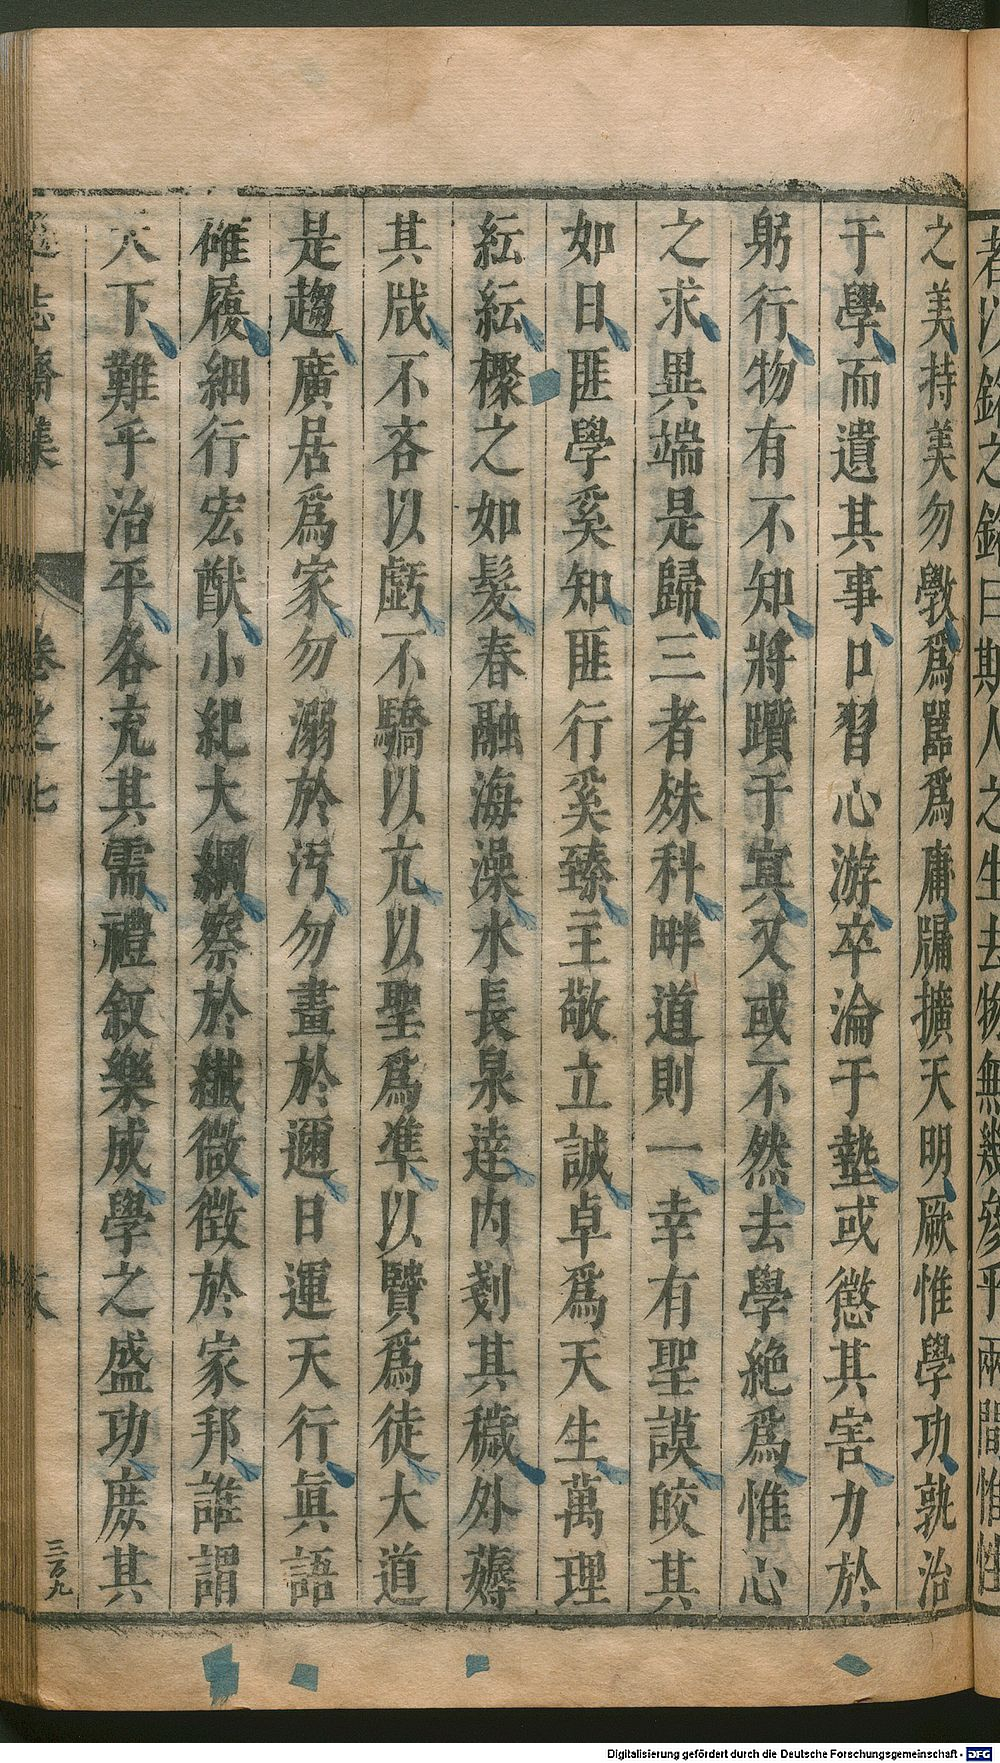 者次銘之銘曰期人之生去物無幾參乎兩間惟性
之美持美勿斅爲嚚爲庸牖擴天明厥惟學功孰治
于學而遺其事口習心游卒淪于墊或懲其害力於
躬行物有不知將躓于寘又或不然去學絶爲惟心
之求異端是歸三者殊科畔道則一幸有聖謨皎其
如日匪學奚知匪行奚臻主敬立誠卓爲天生萬理
紜紜櫽之如髮春融海澡水長泉達内剗其穢外薅
其戕不吝以虧不驕以亢以聖爲準以賢爲徒大道
是趨廣居爲家勿溺於汚勿畫於邇日運天行眞語
確履細行宏猷小紀大綱察於纖微徴於家邦誰謂
天下難乎治平各充其需禮叙樂成學之盛功庶其
遜志齋集 卷之七
三百九
Digitalisierung gefördert durch die Deutsche Forschungsgemeinschaft - DFG